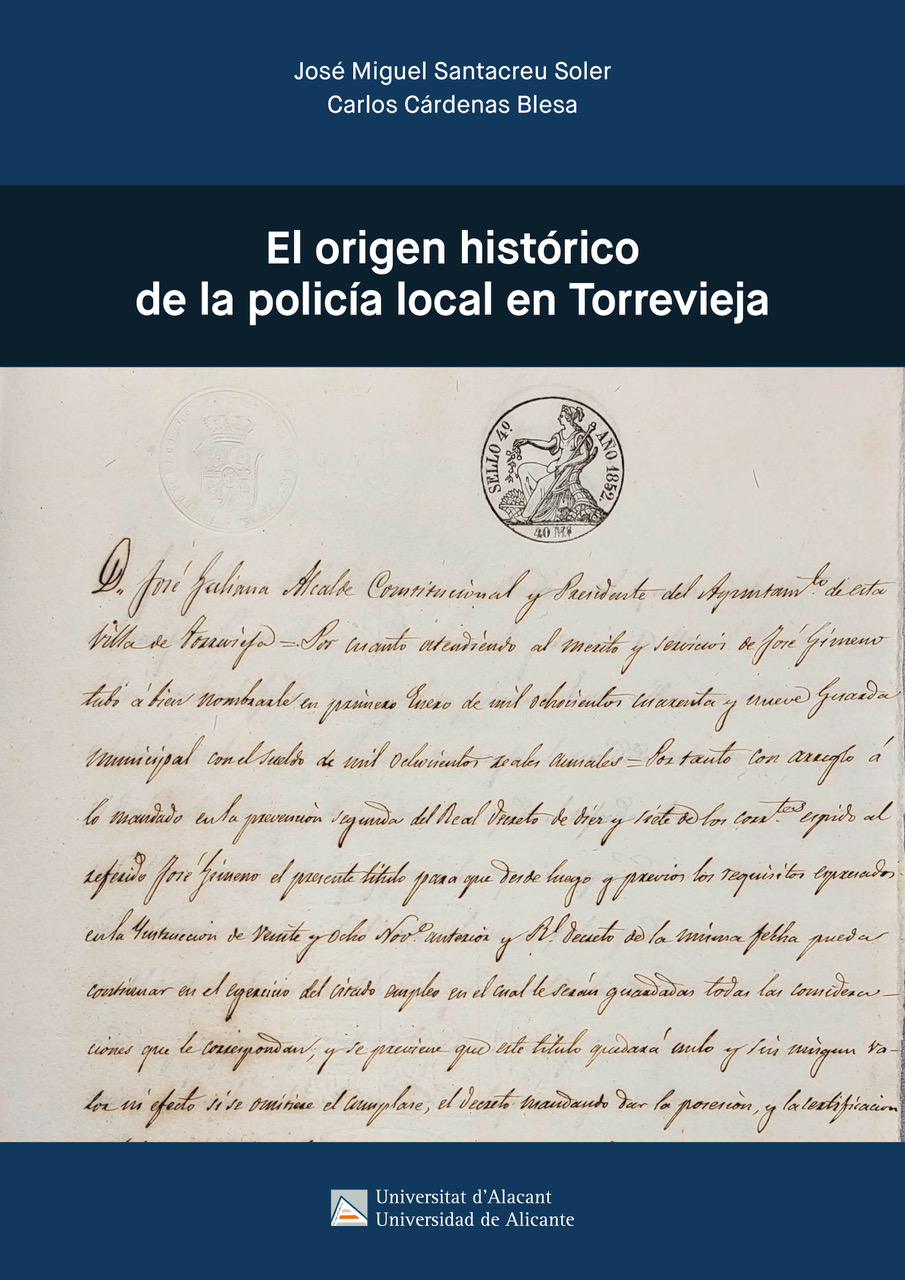 José Miguel Santacreu Soler
Carlos Cárdenas Blesa
El origen histórico
de la policía local en Torrevieja
SELLO 4º AÑO 1852.
40 Ms
Dn José Galiana Alcalde Constitucional y Presidente del Ayuntamto de esta
Villa de Torrevieja = Por cuanto atendiendo al merito y servicios de José Gimeno
tubó á bien nombrarle en primero Enero de mil ochocientos cuarenta y nueve Guarda
municipal con el sueldo de mil ochocientos reales anuales = Por tanto con arreglo á
lo mandado en la prevención segunda del Real decreto de diez y siete de los corrtes espido al
referido José Gimeno el presente titulo para que desde luego y previos los requisitos espresados
en la Ynstruccion de veinte y ocho Nove anterior y Rl decreto de la misma fecha pueda
continuar en el egercicio del citado empleo en el cual le serán guardadas todas las considera-
ciones que le correspondan, y se previene que este titulo quedará nulo y sin ningun va-
lor ni efecto si se omitiere el cumplase, el decreto mandando dar la posesion, y la certificacion
Universitat d'Alacant
Universidad de Alicante